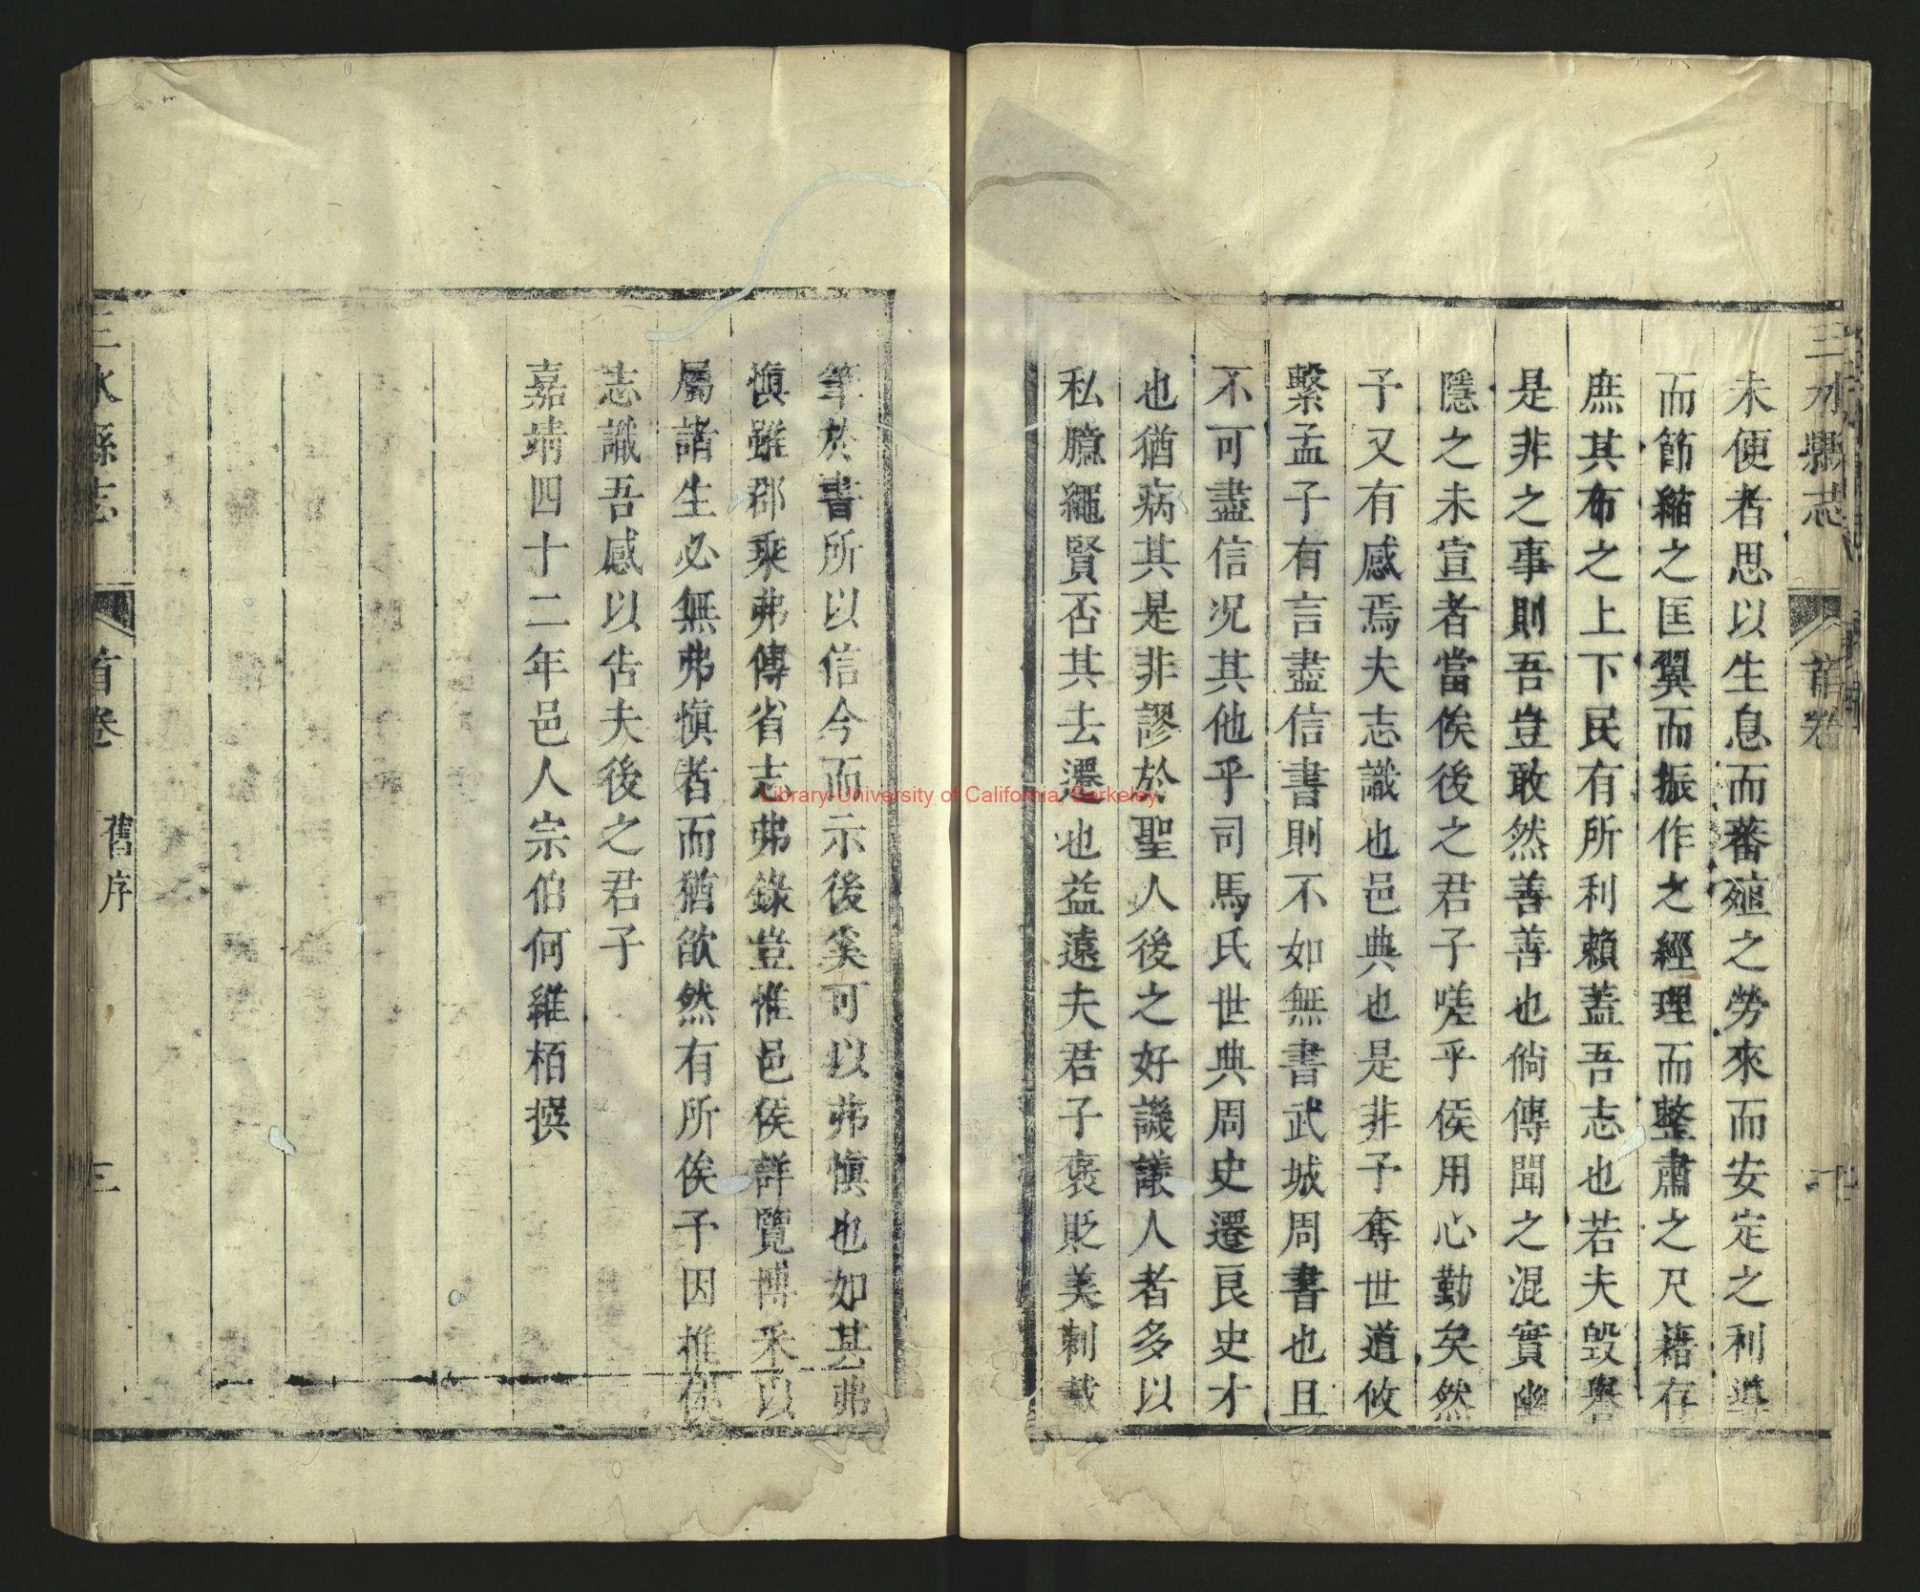 三水縣志
首卷
未便者思以生息而蕃殖之勞來而安定之利導
而節縮之匡翼而振作之經理而整肅之尺籍存
庶其布之上下民有所利賴蓋吾志也若夫毀譽
是非之事則吾豈敢然善善也倘傳聞之混實幽
隱之未宣者當俟後之君子嗟乎侯用心勤矣然
予又有感焉夫志識也邑典也是非予奪世道攸
繫孟子有言盡信書則不如無書武城周書也且
不可盡信况其他乎司馬氏世典周史遷良史才
也猶病其是非謬於聖人後之好譏議人者多以
私臆繩賢否其去遷也益遠夫君子褒貶美刺載
筆於書所以信今而示後奚可以弗愼也如其弗
愼雖郡乘弗傳省志弗錄豈惟邑侯詳覽博釆以
屬諸生必無弗愼者而猶欿然有所俟予因推
志識吾感以告夫後之君子
嘉靖四十二年邑人宗伯何維栢撰
三水縣志
首卷
舊序
三
Library-University of California, Berkeley